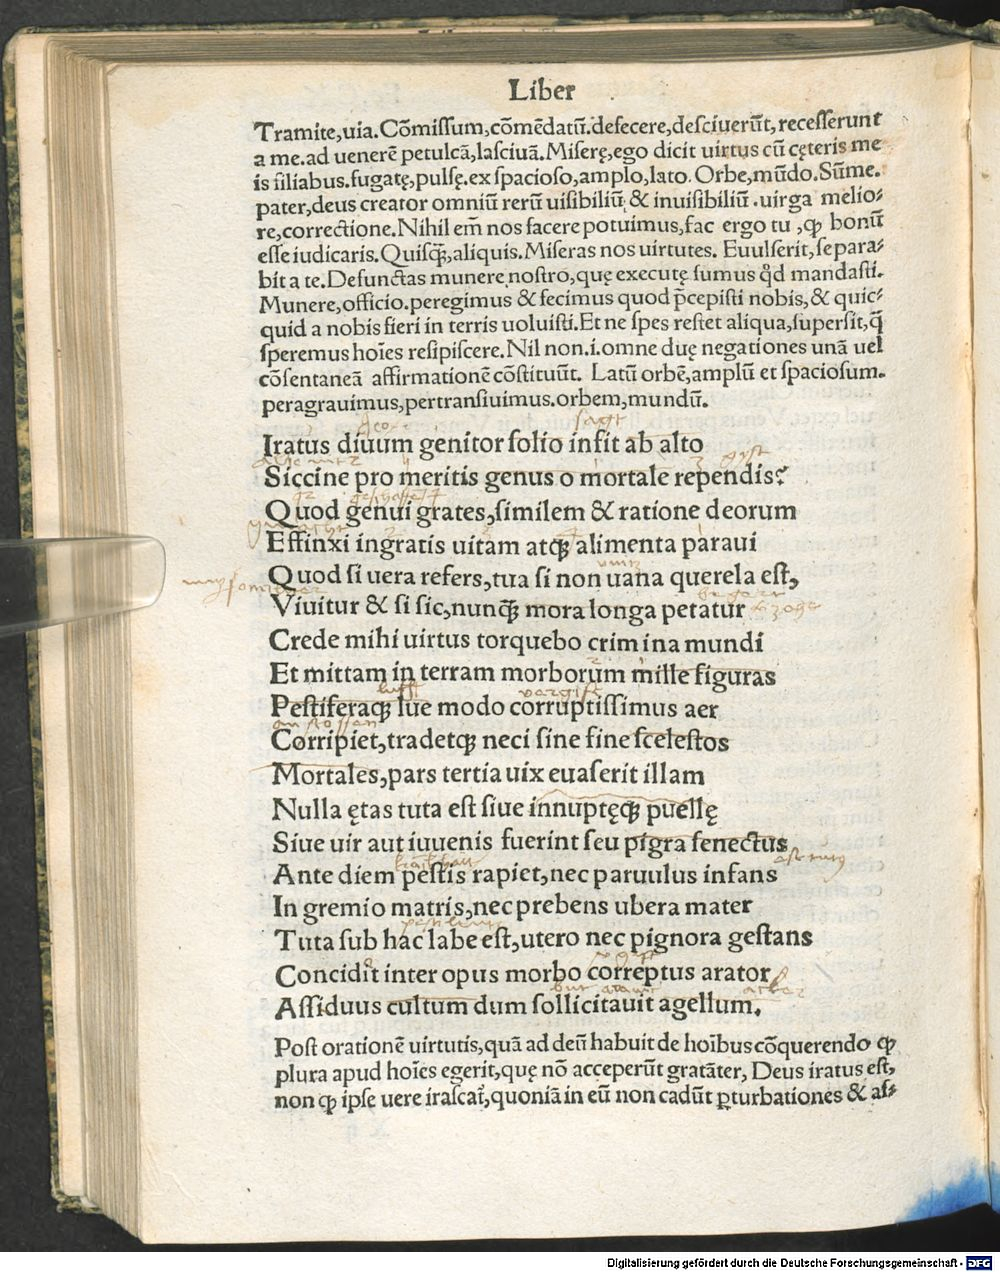 Liber
Tramite,uia.Cõmiſſum,cõmẽdatũ.defecere,deſciuerũt,receſſerunt
a me.ad uenerẽ petulcã,laſciuã.Miſerę,ego dicit uirtus cũ cęteris me
is filiabus.fugatę,pulſę.ex ſpacioſo,amplo,lato.Orbe,mũdo.Sũme.
pater,deus creator omniũ rerũ uiſibiliũ & inuiſibiliũ.uirga melio⸗
re,correctione.Nihil em̃ nos facere potuimus,fac ergo tu,ꝙ bonũ
eſſe iudicaris.Quiſq̃,aliquis.Miſeras nos uirtutes. Euulſerit,ſepara⸗
bit a te.Defunctas munere noſtro,quę executę ſumus qd̃ mandaſti.
Munere,officio.peregimus & fecimus quod p̃cepiſti nobis,& quic⸗
quid a nobis fieri in terris uoluiſti.Et ne ſpes reſtet aliqua,ſuperſit,q̃
ſperemus hoĩes reſipiſcere.Nil non.i.omne duę negationes unã uel
cõſentaneã affirmationẽ cõſtituũt. Latũ orbẽ,amplũ et ſpacioſum.
peragrauimus,pertranſiuimus.orbem,mundũ.
ſagt
Iratus diuum genitor ſolio inſit ab alto
Siccine pro meritis genus o mortale rependis?
Quod genui grates,ſimilem & ratione deorum
Effinxi ingratis uitam atq̃ alimenta paraui
Quod ſi uera refers,tua ſi non uana querela eſt,
Viuitur & ſi ſic,nunq̃ mora longa petatur
Crede mihi uirtus torquebo crimina mundi
Et mittam in terram morborum mille figuras
lufft vargift
Peſtiferaq̃ lue modo corruptiſſimus aer
Corripiet,tradetq̃ neci ſine fine ſceleſtos
Mortales,pars tertia uix euaſerit illam
Nulla ętas tuta eſt ſiue innuptęq̃ puellę
Siue uir aut iuuenis fuerint ſeu pigra ſenectus
Ante diem peſtis rapiet,nec paruulus infans
In gremio matris,nec prebens ubera mater
Tuta ſub hac labe eſt,utero nec pignora geſtans
Concidit inter opus morbo correptus arator
Aſſiduus cultum dum ſollicitauit agellum.
Poſt orationẽ uirtutis,quã ad deũ habuit de hoĩbus cõquerendo ꝙ
plura apud hoĩes egerit,quę nõ acceperũt gratãter, Deus iratus eſt,
non ꝙ ipſe uere iraſcat̃,quoniã in eũ non cadũt ꝑturbationes & aſ⸗
Digitalisierung gefördert durch die Deutsche Forschungsgemeinschaft - DFG